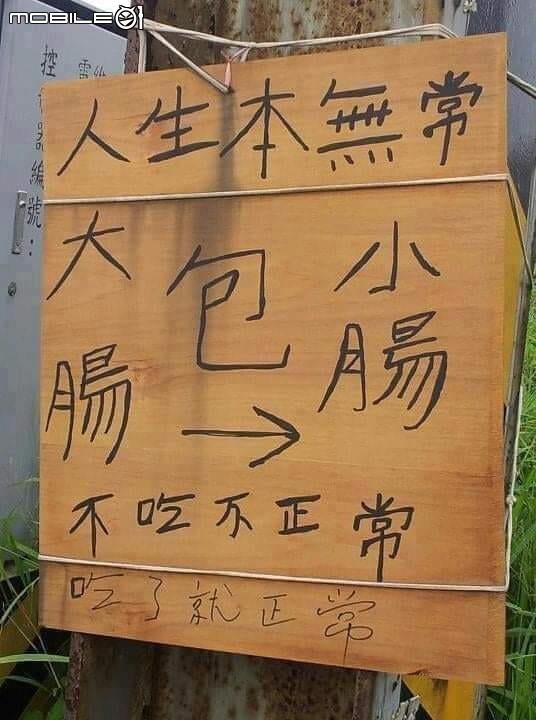 mobile01
控制器編號：
人生本無常
大腸 包 小腸
→
不吃不正常
吃了就正常